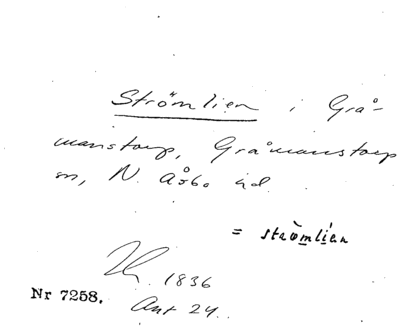 Strömlien i Grå-
manstorp, Gråmanstorp
sn, N. Åsbo hd.
= strömlìen
1836
Nr 7258. Ant 24.